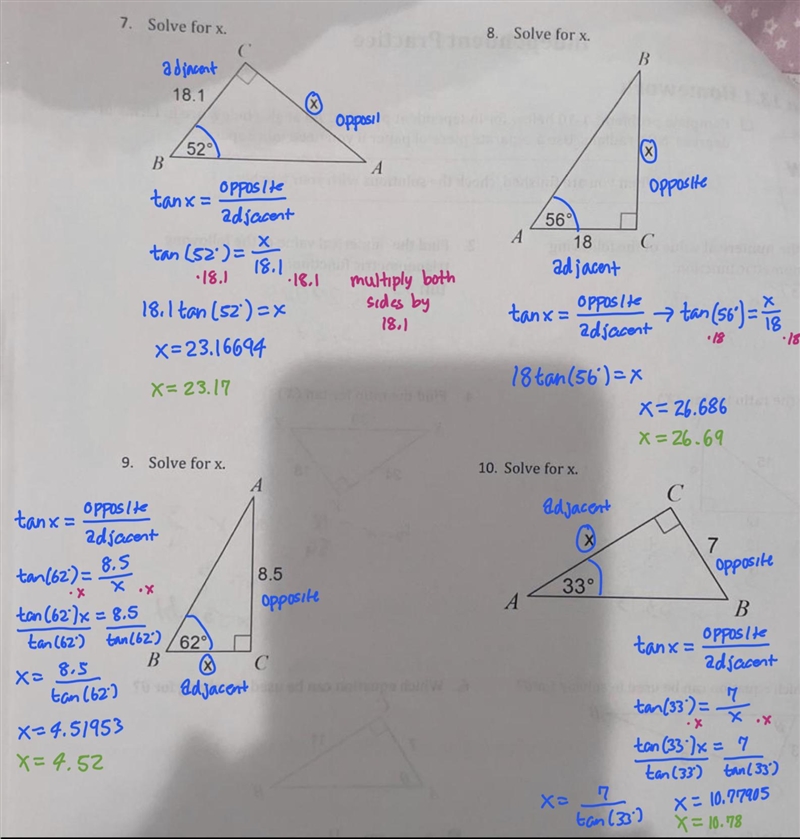 7. Solve for x.
C
adjacent
18.1
x
opposit
52°
B
A
tan x = opposite / adjacent
tan(52°) = x / 18.1
·18.1 ·18.1
multiply both
sides by
18.1
18.1 tan(52°) = x
x = 23.16694
x = 23.17
8. Solve for x.
B
x
opposite
56°
A
18
C
adjacent
tan x = opposite / adjacent → tan(56°) = x / 18
·18 ·18
18 tan(56°) = x
x = 26.686
x = 26.69
9. Solve for x.
A
tan x = opposite / adjacent
tan(62°) = 8.5 / x
·x ·x
tan(62°)x / tan(62°) = 8.5 / tan(62°)
x = 8.5 / tan(62°)
x = 4.51953
x = 4.52
8.5
opposite
62°
B
x
C
adjacent
10. Solve for x.
C
adjacent
x
7
opposite
33°
A
B
tan x = opposite / adjacent
tan(33°) = 7 / x
·x ·x
tan(33°)x / tan(33°) = 7 / tan(33°)
x = 7 / tan(33°)
x = 10.77905
x = 10.78